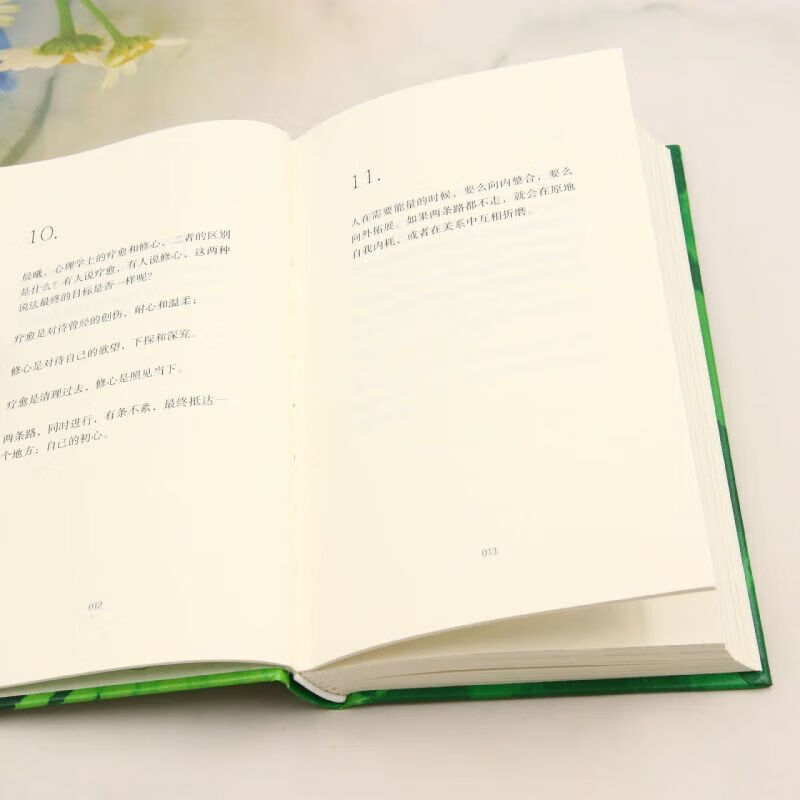 10.
晨曦，心理学上的疗愈和修心，二者的区别
是什么？有人说疗愈，有人说修心，这两种
说法最终的目标是否一样呢？
疗愈是对待曾经的创伤，耐心和温柔；
修心是对待自己的欲望，下探和深究。
疗愈是清理过去，修心是照见当下。
两条路，同时进行，有条不紊，最终抵达一
个地方：自己的初心。
012
11.
人在需要能量的时候，要么向内整合，要么
向外拓展。如果两条路都不走，就会在原地
自我内耗，或者在关系中互相折磨。
013